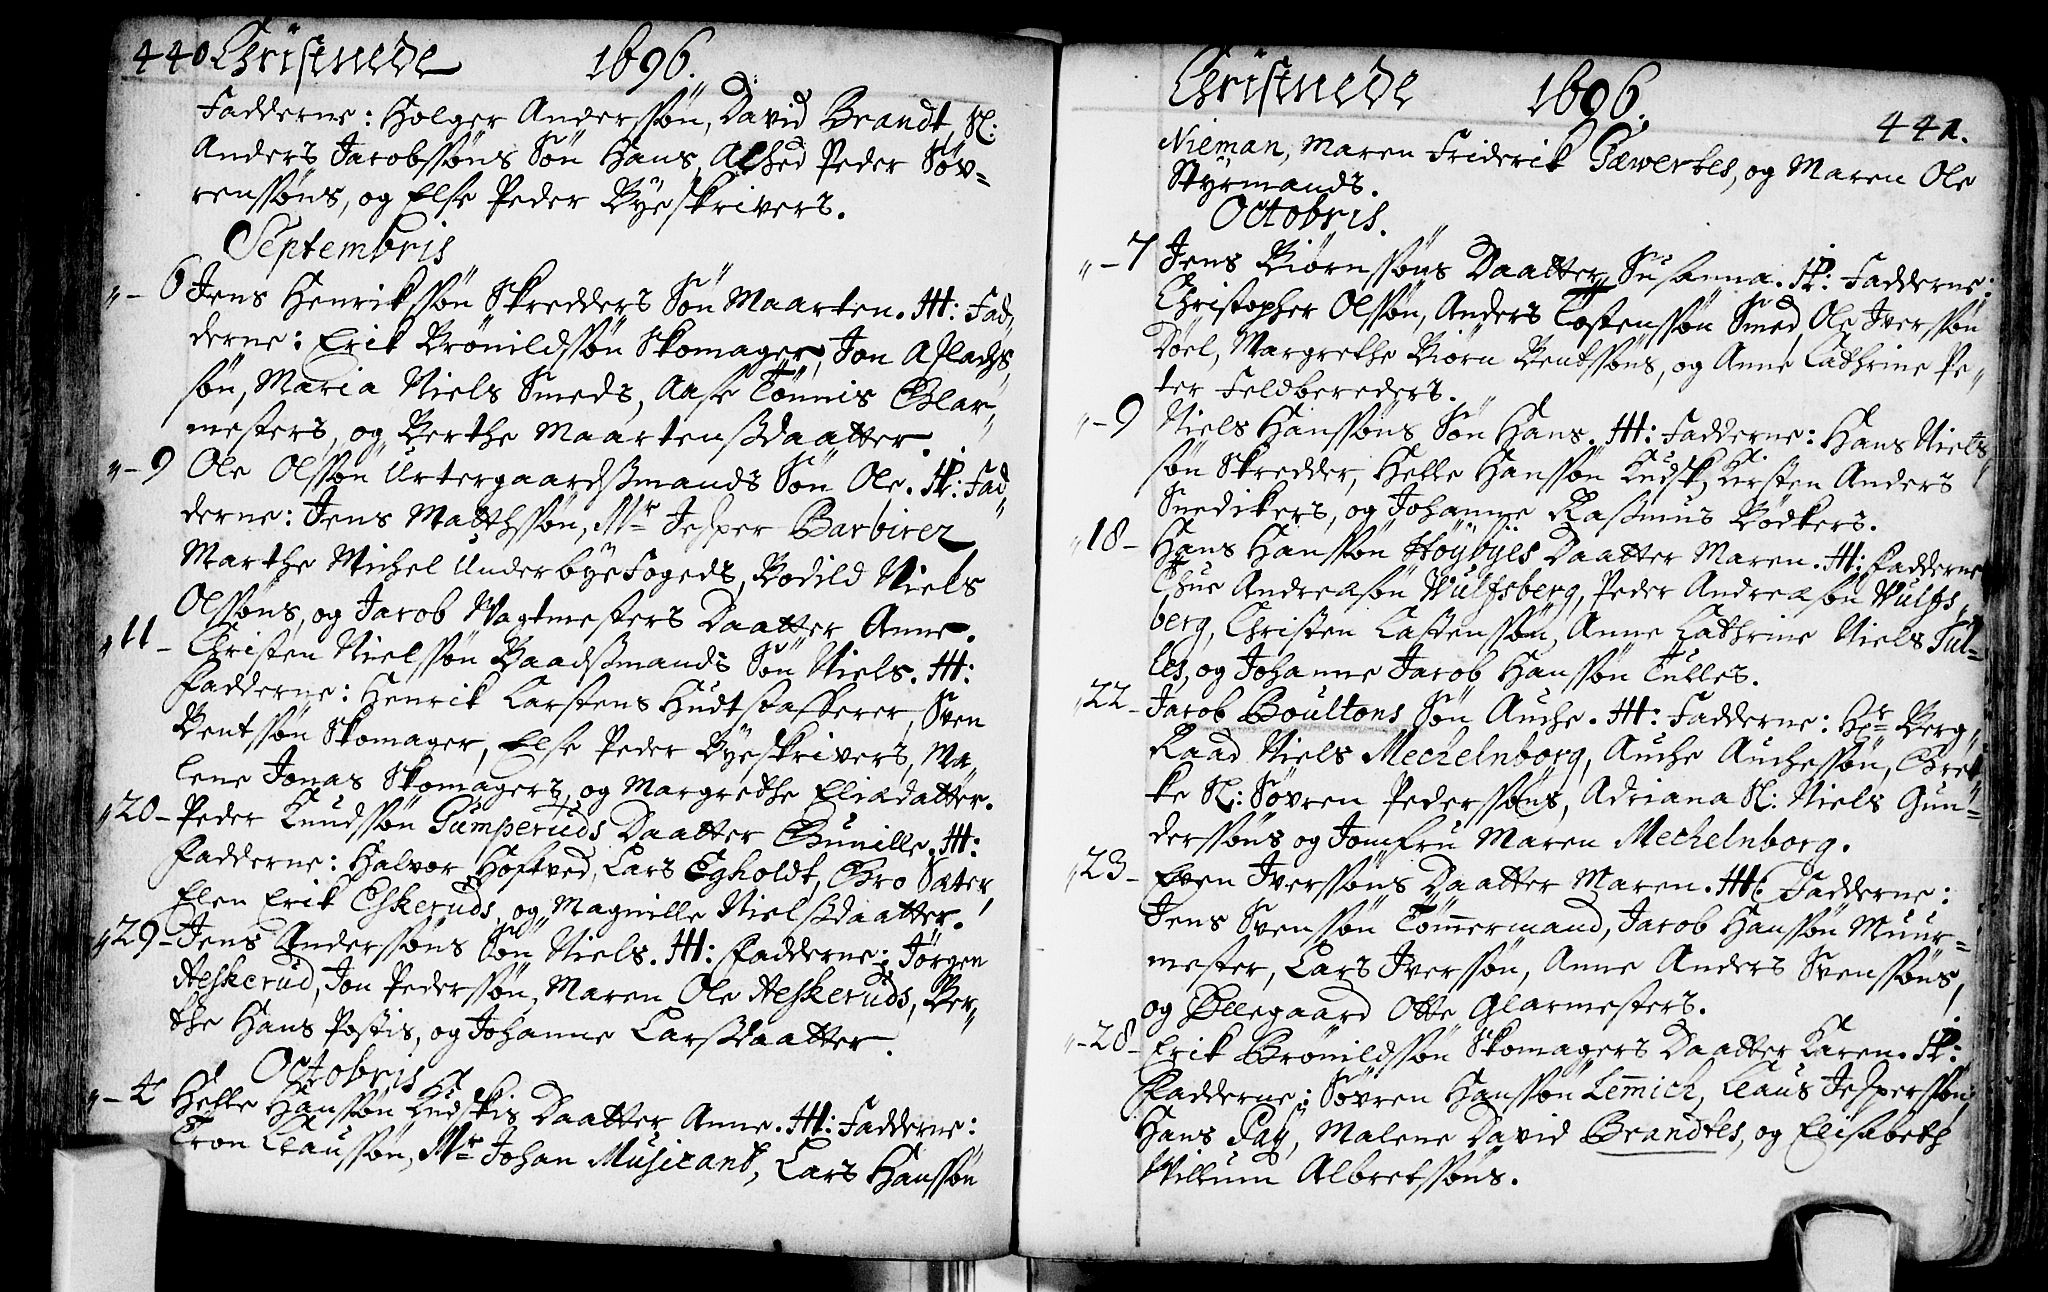 440 Christnede 1696.
Fadderne: Holger Anderssøn, David Brandt, Sl:
Anders Jacobssøns Søn Hans, Alhed Peder Søv-
renssøns, og Else Peder Byeskrivers.
Septembris
"- 6 Jens Henrikssøn Skredders Søn Maarten. H: Fad-
derne: Erik Brønildssøn Skomager, Jon Aslachs-
søn, Maria Niels Smeds, Aase Tönnis Glar-
mesters, og Berthe Maartensdaatter.
"- 9 Ole Olssøn Urtergaardsmands Søn Ole. P: Fad-
derne: Jens Matthssøn, Mr Jesper Barbirer,
Marthe Michel Underbyefogeds, Bodild Niels
Olssøns, og Jacob Wagtmesters Daatter Anne.
"11- Christen Nielssøn Baadsmands Søn Niels. H:
Fadderne: Henrik Carstens Hudtstafferer, Sven
Bentssøn Skomager, Else Peder Byeskrivers, Ma-
lene Jonas Skomagers, og Margrethe Eliædatter.
"20- Peder Knudssøn Gumperuds Daatter Gunille. H:
Fadderne: Halvor Hoftved, Lars Egholdt, Gro Sæter,
Elen Erik Eskeruds, og Magnille Nielsdaatter.
"29- Jens Anderssøns Søn Niels. H: Fadderne: Jörgen
Aeskerud, Jon Pederssøn, Maren Ole Aeskeruds, Ber-
the Hans Postis, og Johanne Larsdaatter.
Octobris
"- 4 Helle Hanssøn Kudskis Daatter Anne. H: Fadderne:
Tron Claussøn, Mr Johan Musicant, Lars Hanssøn
Christnede 1696. 441.
Nieman, Maren Friderik Gæwertes, og Maren Ole
Styrmands.
Octobris.
"- 7 Jens Biørnssøns Daatter Susanna. P: Fadderne:
Christopher Olssøn, Anders Tostenssøn Smed, Ole Iverssøn
Döel, Margrethe Biørn Bentssøns, og Anne Cathrine Pe-
ter Feldbereders.
"- 9 Niels Hanssøns Søn Hans. H: Fadderne: Hans Niels-
søn Skredder, Helle Hanssøn Kudsk, Kirsten Anders
Snedikers, og Johanne Rasmus Bödkers.
"18- Hans Hanssøn Höybyes Daatter Maren. H: Fadderne
Thue Andreæsøn Wulfsberg, Peder Andreæsøn Wulfs-
berg, Christen Castenssøn, Anne Cathrine Niels Tul-
les, og Johanne Jacob Hanssøn Tulles.
"22- Jacob Boultons Søn Auche. H: Fadderne: Hr Berg-
Raad Niels Mechelnborg, Auche Auchessøn, Gret-
ke Sl: Søvren Pederssøns, Adriana Sl: Niels Gun-
derssøns og Jomfru Maren Mechelnborg.
"23- Even Iverssøns Daatter Maren. H: Fadderne:
Jens Svenssøn Tömmermand, Jacob Hanssøn Muur-
mester, Lars Iverssøn, Anne Anders Svenssøns,
og Ellegaard Otte Glarmesters.
"-28- Erik Brønildssøn Skomagers Daatter Karen. P:
Fadderne: Søvren Hanssøn Lemich, Claus Jesperssøn,
Hans Pay, Malene David Brandtes, og Elisabeth
Willum Albretssøns.